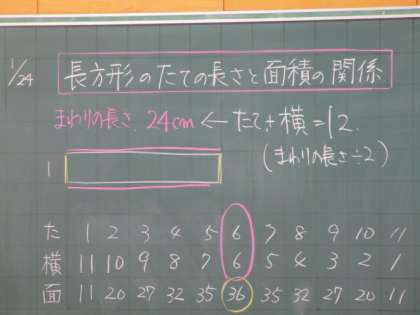 1/24
長方形のたての長さと面積の関係
まわりの長さ 24cm ← たて+横=12.
(まわりの長さ÷2)
1
た 1 2 3 4 5 6 7 8 9 10 11
横 11 10 9 8 7 6 5 4 3 2 1
面 11 20 27 32 35 36 35 32 27 20 11